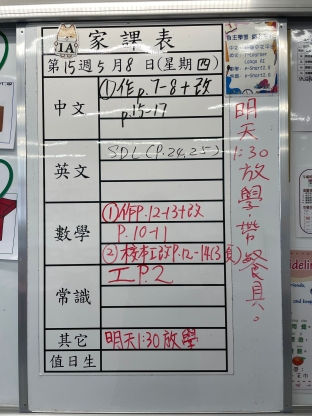 1A
家課表
第15週5月8日(星期四)
中文
①作p.7-8+改
p.15-17
英文
SDL(P.24,25)
數學
①作P.12-13+改
P.10-11
②校本工改P.12-14(3頁)
常識
工P.2
其它
明天1:30放學
值日生
明天1:30放學,帶餐具。